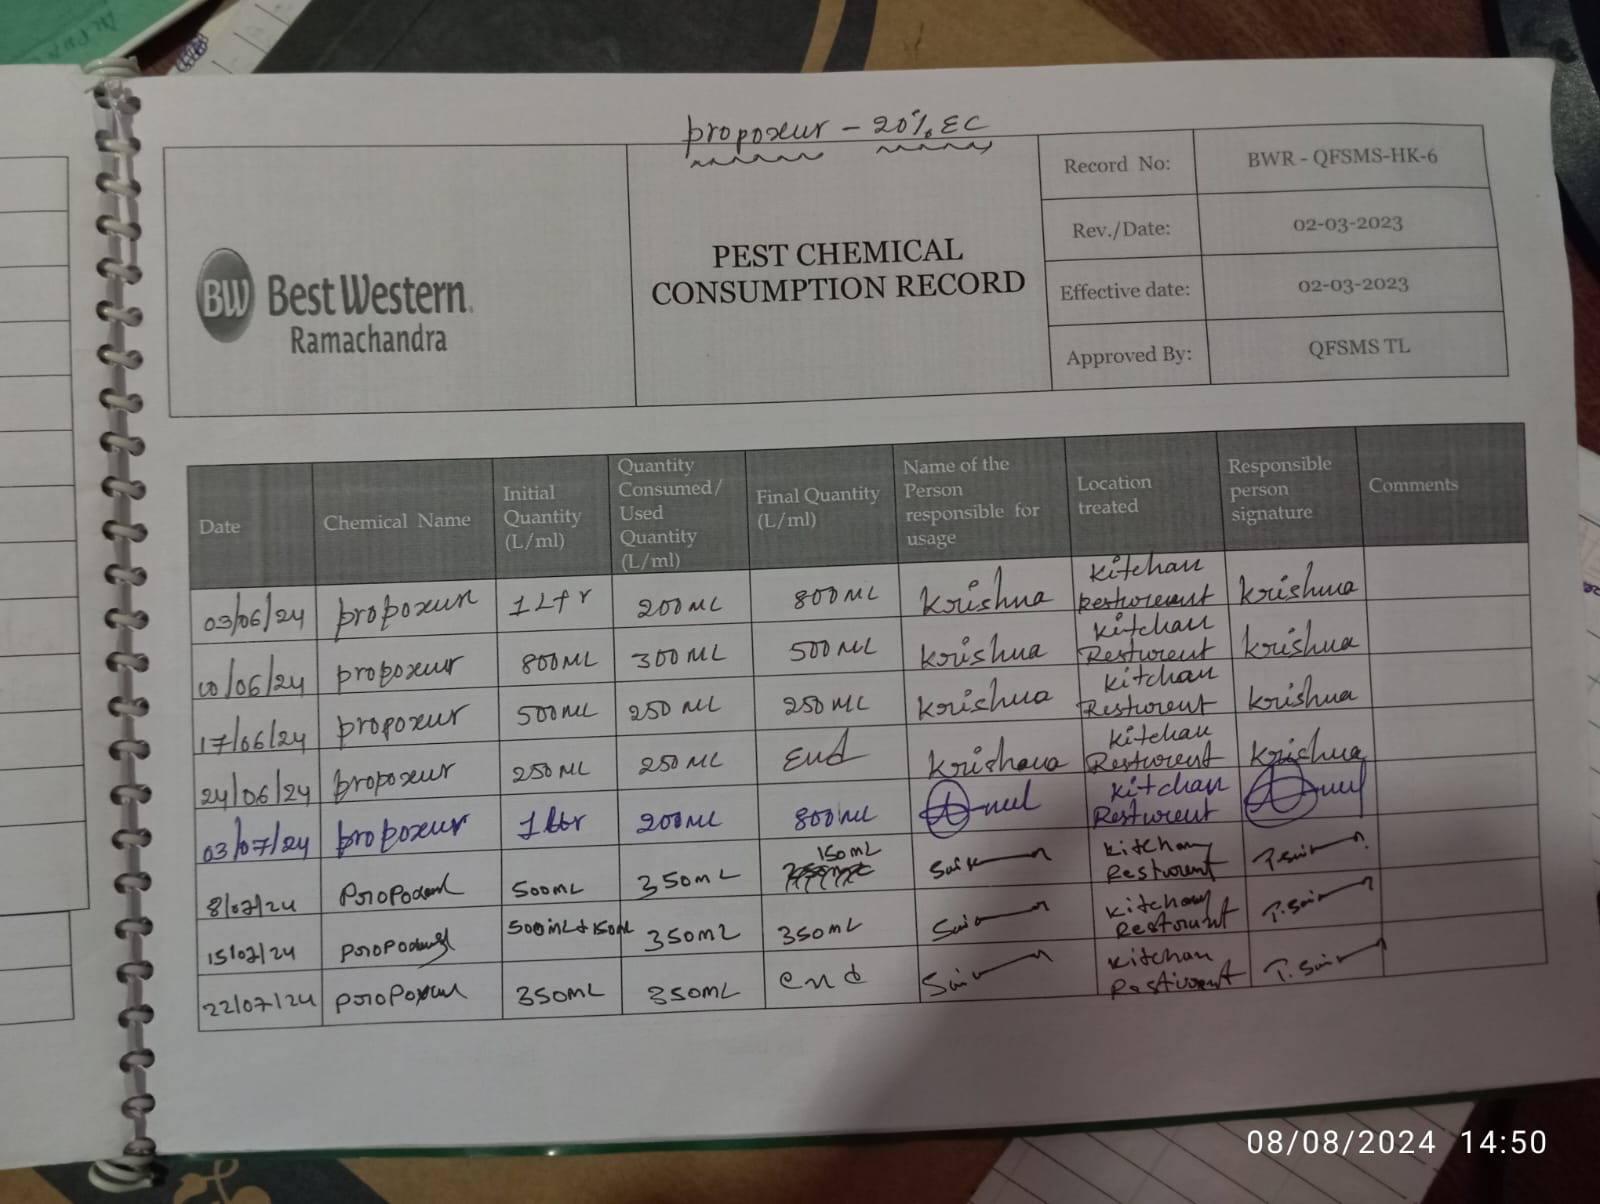 propoxeur - 20% EC
BW Best Western
Ramachandra
PEST CHEMICAL
CONSUMPTION RECORD
Record No: BWR - QFSMS-HK-6
Rev./Date: 02-03-2023
Effective date: 02-03-2023
Approved By: QFSMS TL
Date
Chemical Name
Initial
Quantity
(L/ml)
Quantity
Consumed/
Used
Quantity
(L/ml)
Final Quantity
(L/ml)
Name of the
Person
responsible for
usage
Location
treated
Responsible
person
signature
Comments
03/06/24 propoxeur 1 Ltr 200ML 800ML Krishna Kitchan Resturent Krishna
10/06/24 propoxeur 800ML 300ML 500ML Krishna Kitchan Resturent Krishna
17/06/24 propoxeur 500ML 250ML 250ML Krishna Kitchan Resturent Krishna
24/06/24 propoxeur 250ML 250ML End Krishana Kitchan Resturent Krishna
03/07/24 propoxeur 1 ltr 200ML 800ML Kitchan Resturent
8/07/24 500ML 350ML 150mL Kitchan Resturent
15/07/24 500mL+150mL 350ML 350ML Kitchan Resturent T. Sai
22/07/24 350ML 350ML end Kitchan T. Sai
08/08/2024 14:50